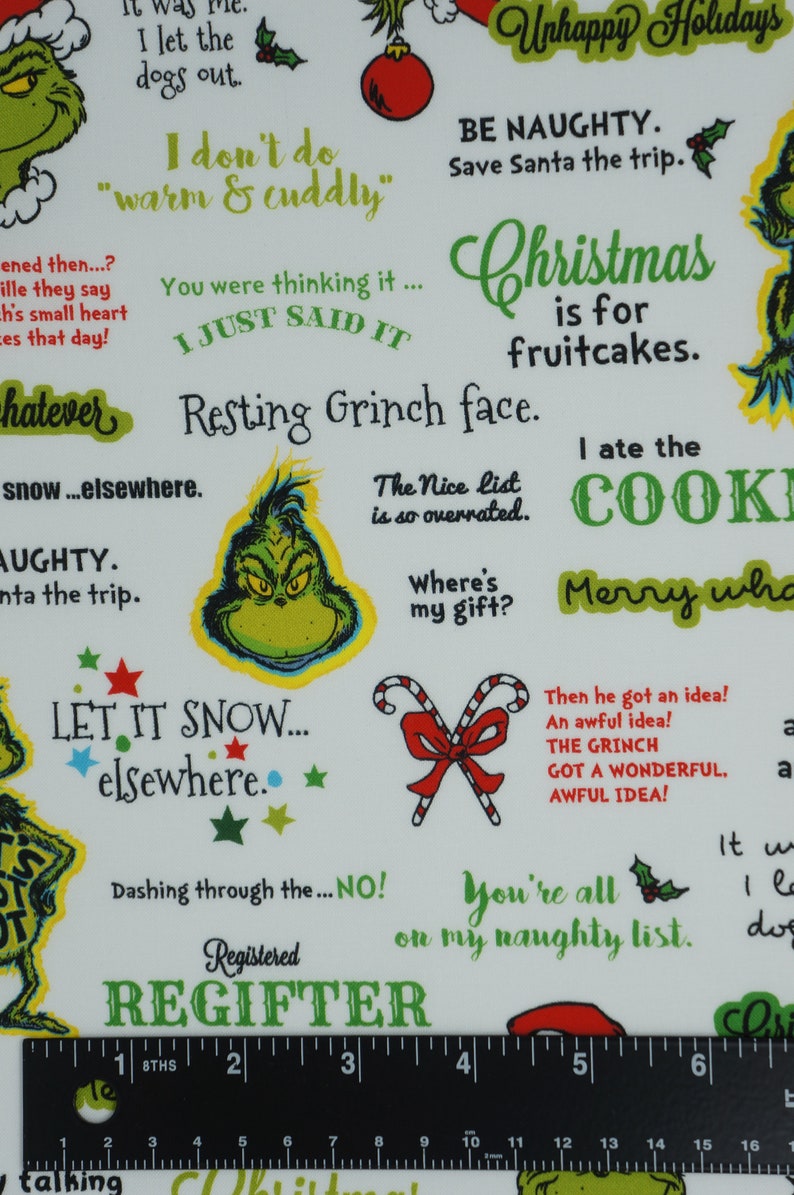 It was me.
I let the
dogs out.
Unhappy Holidays
I don't do
"warm & cuddly"
BE NAUGHTY.
Save Santa the trip.
ened then...?
ille they say
h's small heart
es that day!
You were thinking it ...
I JUST SAID IT
Christmas
is for
fruitcakes.
hatever
Resting Grinch face.
snow ...elsewhere.
The Nice List
is so overrated.
I ate the
COOK
AUGHTY.
nta the trip.
Where's
my gift?
Merry wha
LET IT SNOW...
elsewhere.
Then he got an idea!
An awful idea!
THE GRINCH
GOT A WONDERFUL,
AWFUL IDEA!
It w
I le
dog
Dashing through the ... NO!
You're all
on my naughty list.
Registered
REGIFTER
1 8THS 2 3 4 5 6
1 2 3 4 5 6 7 8 9 cm 10 11 12 13 14 15 16
2mm
talking
Christmas